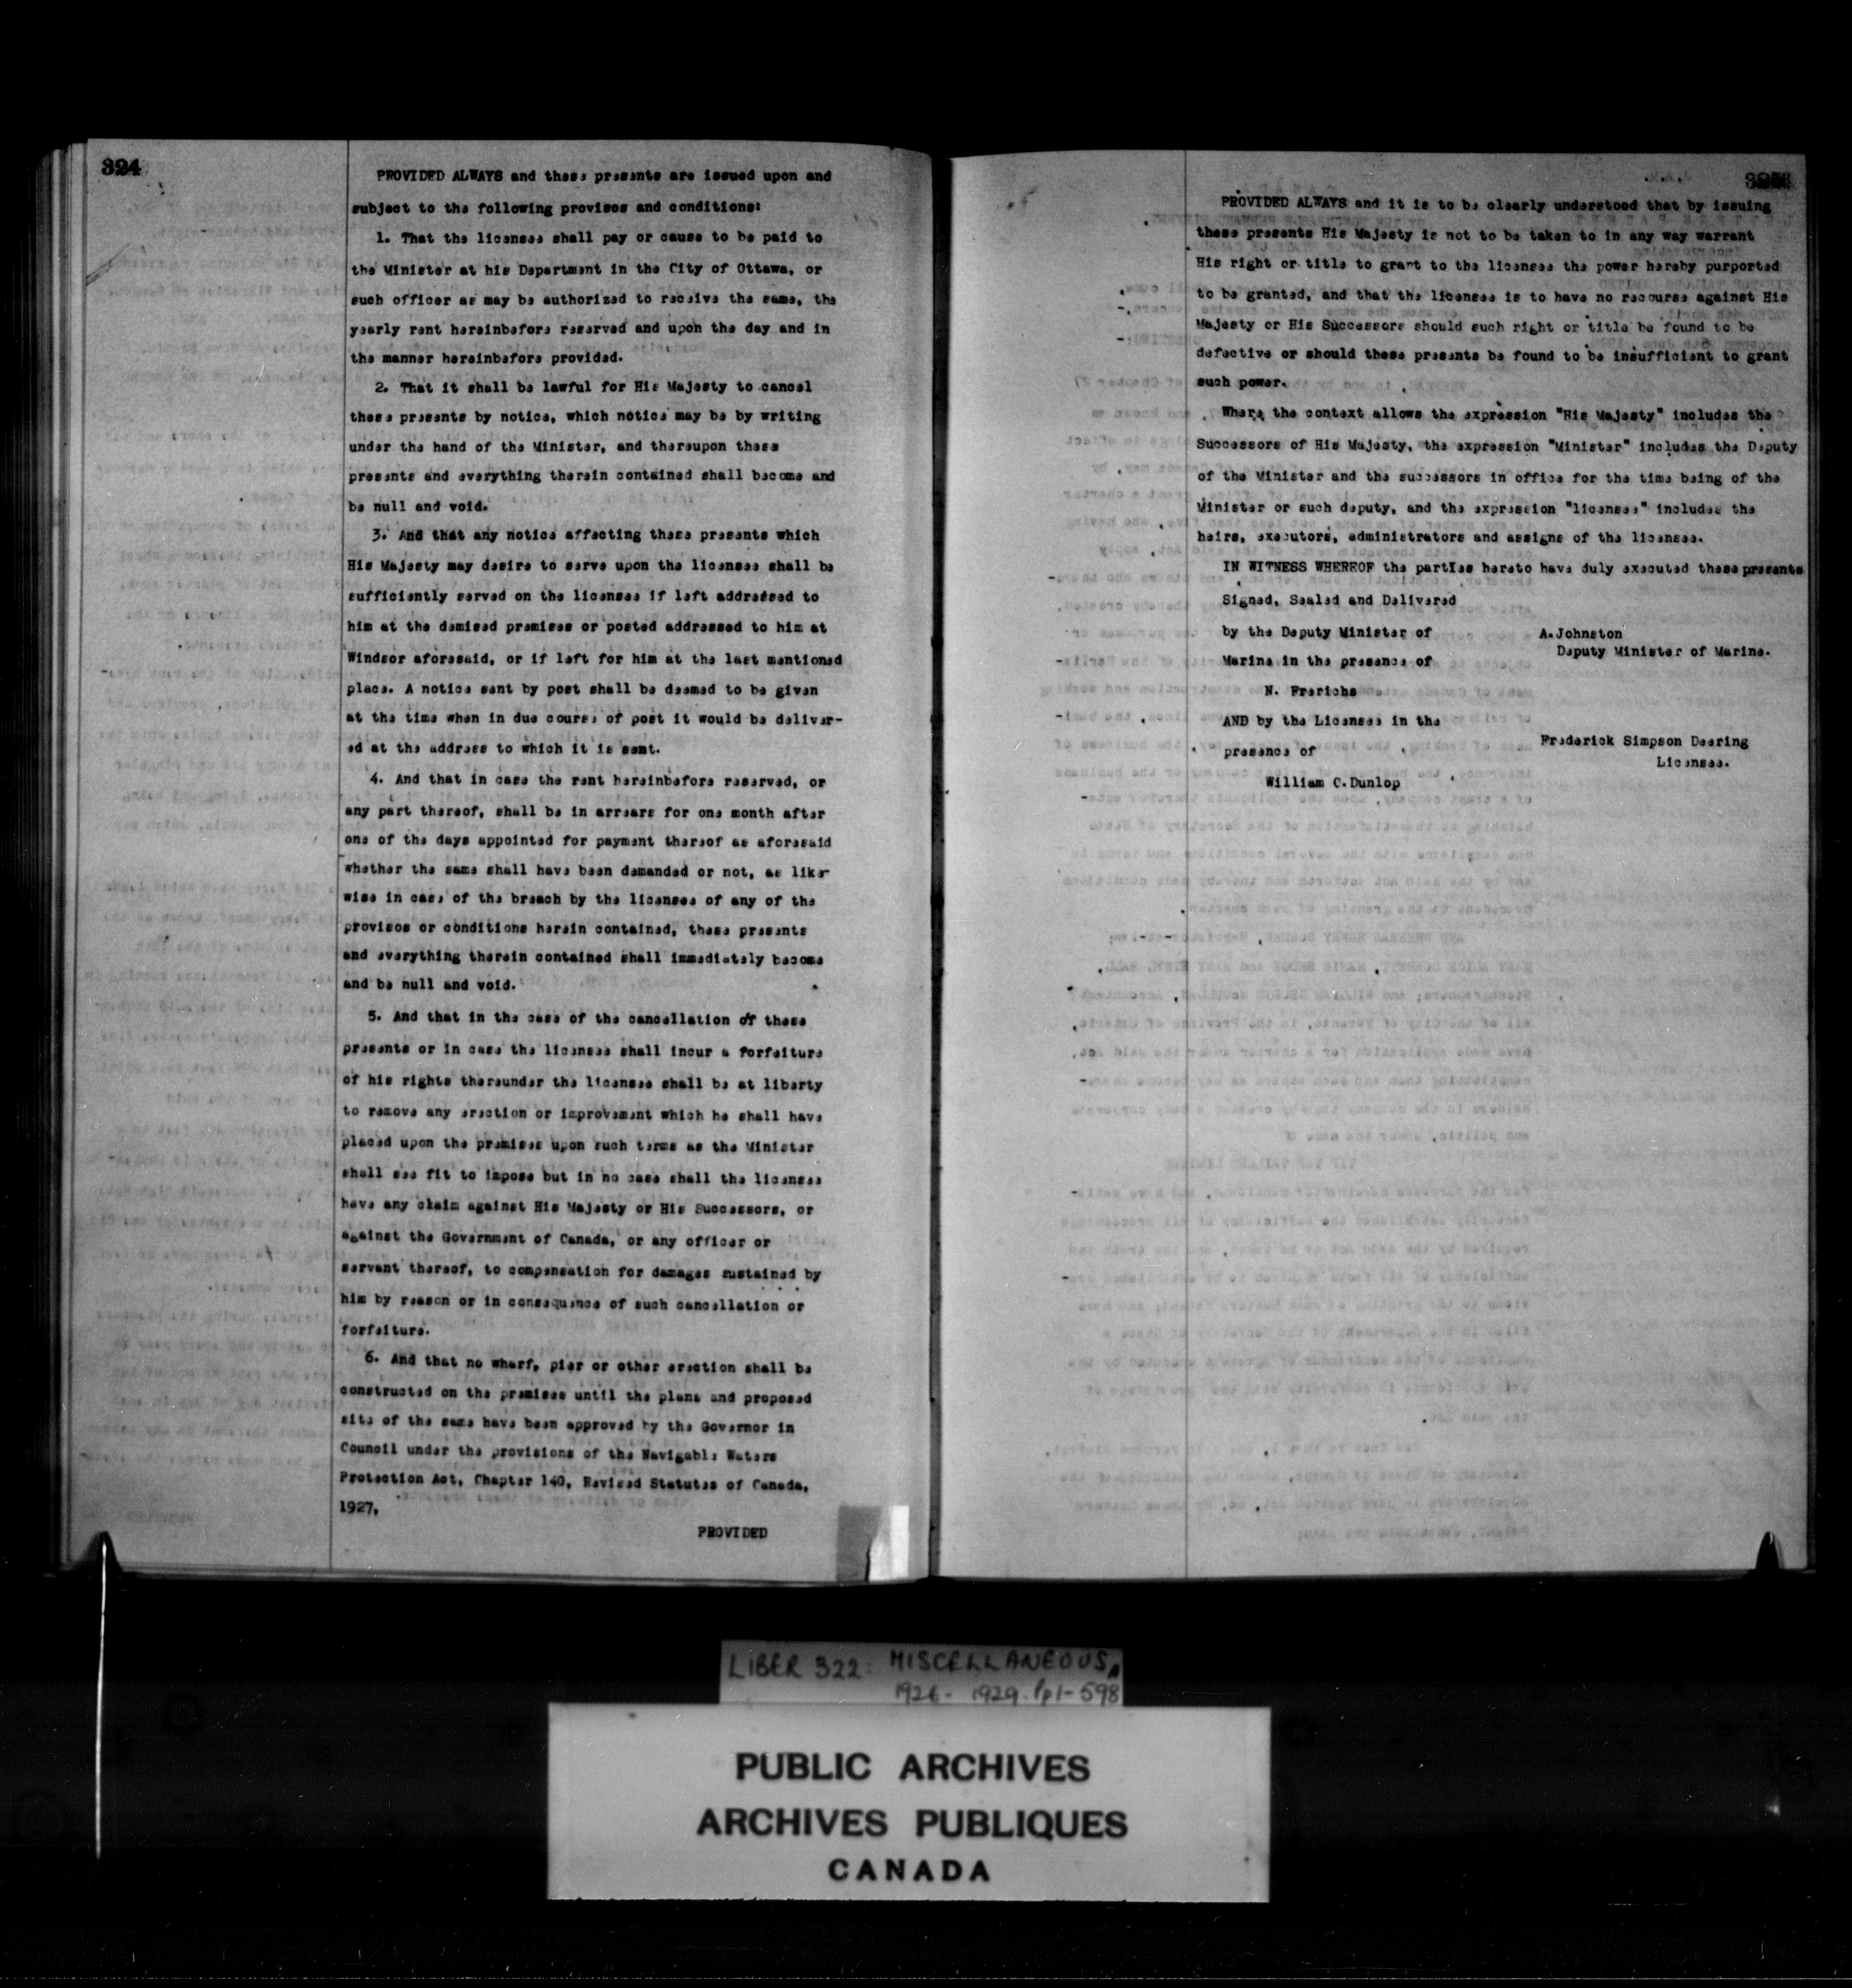 324
PROVIDED ALWAYS and these presents are issued upon and
subject to the following provisos and conditions:
1. That the licensee shall pay or cause to be paid to
the Minister at his Department in the City of Ottawa, or
such officer as may be authorized to receive the same, the
yearly rent hereinbefore reserved and upon the day and in
the manner hereinbefore provided.
2. That it shall be lawful for His Majesty to cancel
these presents by notice, which notice may be by writing
under the hand of the Minister, and thereupon these
presents and everything therein contained shall become and
be null and void.
3. And that any notice affecting these presents which
His Majesty may desire to serve upon the licensee shall be
sufficiently served on the licensee if left addressed to
him at the demised premises or posted addressed to him at
Windsor aforesaid, or if left for him at the last mentioned
place. A notice sent by post shall be deemed to be given
at the time when in due course of post it would be deliver-
ed at the address to which it is sent.
4. And that in case the rent hereinbefore reserved, or
any part thereof, shall be in arrears for one month after
one of the days appointed for payment thereof as aforesaid
whether the same shall have been demanded or not, as like-
wise in case of the breach by the licensee of any of the
provisos or conditions herein contained, these presents
and everything therein contained shall immediately become
and be null and void.
5. And that in the case of the cancellation of these
presents or in case the licensee shall incur a forfeiture
of his rights thereunder the licensee shall be at liberty
to remove any erection or improvement which he shall have
placed upon the premises upon such terms as the Minister
shall see fit to impose but in no case shall the licensee
have any claim against His Majesty or His Successors, or
against the Government of Canada, or any officer or
servant thereof, to compensation for damages sustained by
him by reason or in consequence of such cancellation or
forfeiture.
6. And that no wharf, pier or other erection shall be
constructed on the premises until the plans and proposed
site of the same have been approved by the Governor in
Council under the provisions of the Navigable Waters
Protection Act, Chapter 140, Revised Statutes of Canada,
1927,
PROVIDED
PROVIDED ALWAYS and it is to be clearly understood that by issuing
these presents His Majesty is not to be taken to in any way warrant
His right or title to grant to the licensee the power hereby purported
to be granted, and that the licensee is to have no recourse against His
Majesty or His Successors should such right or title be found to be
defective or should these presents be found to be insufficient to grant
such power.
Where the context allows the expression "His Majesty" includes the
Successors of His Majesty, the expression "Minister" includes the Deputy
of the Minister and the successors in office for the time being of the
Minister or such deputy, and the expression "licensee" includes the
heirs, executors, administrators and assigns of the licensee.
IN WITNESS WHEREOF the parties hereto have duly executed these presents
Signed, Sealed and Delivered
by the Deputy Minister of
Marine in the presence of
N. Frerichs
A.Johnston
Deputy Minister of Marine.
AND by the Licensee in the
presence of
William C.Dunlop
Frederick Simpson Deering
Licensee.
LIBER 322: MISCELLANEOUS,
1926 - 1929. pp1-598
PUBLIC ARCHIVES
ARCHIVES PUBLIQUES
CANADA